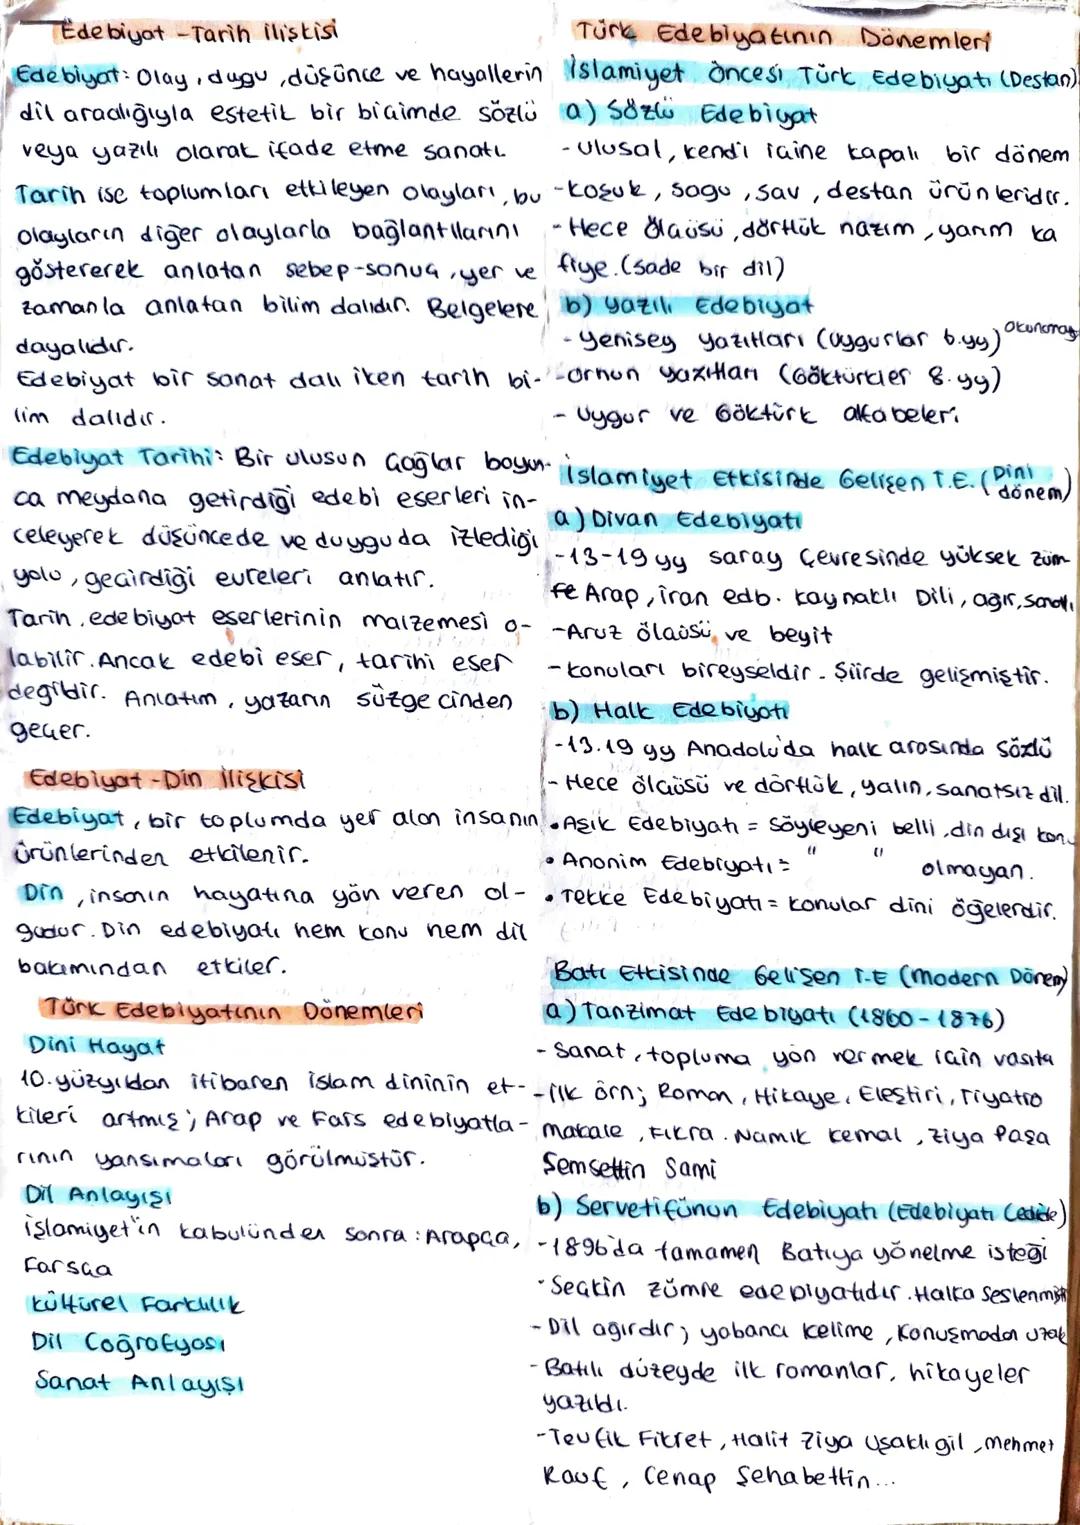 Edebiyat - Tarih ilişkisi
Edebiyat: Olay, duygu, düşünce ve hayallerin
dil aracılığıyla estetik bir biçimde sözlü
veya yazılı olarak ifade etme sanatı.
Tarih ise toplumları etkileyen olayları, bu
olayların diğer olaylarla bağlantılarını
göstererek anlatan sebep-sonuç, yer ve
zamanla anlatan bilim dalıdır. Belgelere
dayalıdır.
Edebiyat bir sanat dalı iken tarih bi-
lim dalıdır.
Edebiyat Tarihi: Bir ulusun çağlar boyun-
ca meydana getirdiği edebi eserleri in-
celeyerek düşüncede ve duyguda izlediği
yolu, geçirdiği evreleri anlatır.
Tarih, edebiyat eserlerinin malzemesi o-
labilir. Ancak edebi eser, tarihi eser
değildir. Anlatım, yazarın süzgecinden
geçer.
Edebiyat - Din İlişkisi
Edebiyat, bir toplumda yer alan insanın
ürünlerinden etkilenir.
Din, insanın hayatına yön veren ol-
gudur. Din edebiyatı hem konu hem dil
bakımından etkiler.
Türk Edebiyatının Dönemleri
Dini Hayat
10. yüzyıldan itibaren islam dininin et-
kileri artmış; Arap ve Fars edebiyatla-
rının yansımaları görülmüştür.
Dil Anlayışı
islamiyet'in kabulünden sonra: Arapça,
Farsça
Kültürel Farklılık
Dil Coğrafyası
Sanat Anlayışı
Türk Edebiyatının Dönemleri
İslamiyet Öncesi Türk Edebiyatı (Destan)
a) Sözlü Edebiyat
- Ulusal, kendi içine kapalı bir dönem
- Koşuk, sagu, sav, destan ürünleridir.
- Hece Ölçüsü, dörtlük nazım, yarım ka
fiye. (sade bir dil)
b) Yazılı Edebiyat
- Yenisey yazıtları (Uygurlar 6.yy)
- Orhun yazıtları (Göktürkler 8.yy)
- Uygur ve Göktürk alfabeleri
İslamiyet Etkisinde Gelişen T.E. (Dini dönem)
a) Divan Edebiyatı
- 13-19 yy saray Çevresinde yüksek züm-
re Arap, iran edb. kaynaklı Dili, ağır, sanatlı
- Aruz ölçüsü ve beyit
- Konuları bireyseldir. Şiirde gelişmiştir.
b) Halk Edebiyatı
- 13.19 yy Anadolu'da halk arasında sözlü
- Hece ölçüsü ve dörtlük, yalın, sanatsız dil.
• Aşık Edebiyatı = Söyleyeni belli, din dışı konu
• Anonim Edebiyatı = " " olmayan.
• Tekke Edebiyatı = konular dini öğelerdir.
Batı Etkisinde Gelişen T.E (Modern Dönem)
a) Tanzimat Edebiyatı (1860-1876)
- Sanat, topluma yön vermek için vasıta
- İlk örn; Roman, Hikaye, Eleştiri, Tiyatro
makale, Fıkra. Namık Kemal, Ziya Paşa
Şemsettin Sami
b) Servetifünun Edebiyatı (Edebiyatı Cedide)
- 1896'da tamamen Batıya yönelme isteği
- Seçkin zümre edebiyatıdır. Halka
- Dil ağırdır, yabancı kelime, Konuşmadan uzak
- Batılı düzeyde ilk romanlar, hikayeler
yazıldı.
- Tevfik Fikret, Halit Ziya Uşaklıgil, Mehmet
Rauf, Cenap Şehabettin...